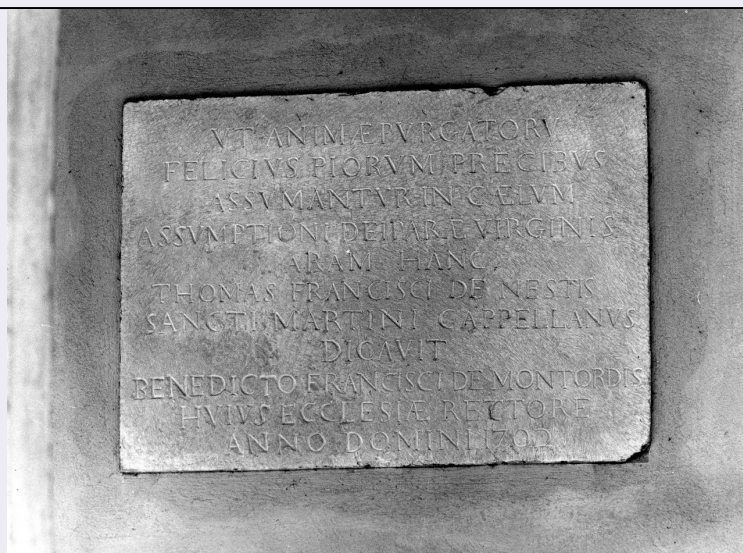 VT ANIMÆ PVRGATORY
FELICIVS PIORVM PRECIBVS
ASSVMANTVR IN CÆLVM
ASSVMPTIONI DEIPARÆ VIRGINIS
ARAM HANC,
THOMAS FRANCISCI DE NESTIS
SANCTI MARTINI CAPPELLANVS
DICAVIT
BENEDICTO FRANCISCI DE MONTORDIS
HVIVS ECCLESIÆ RECTORE
ANNO DOMINI 1702